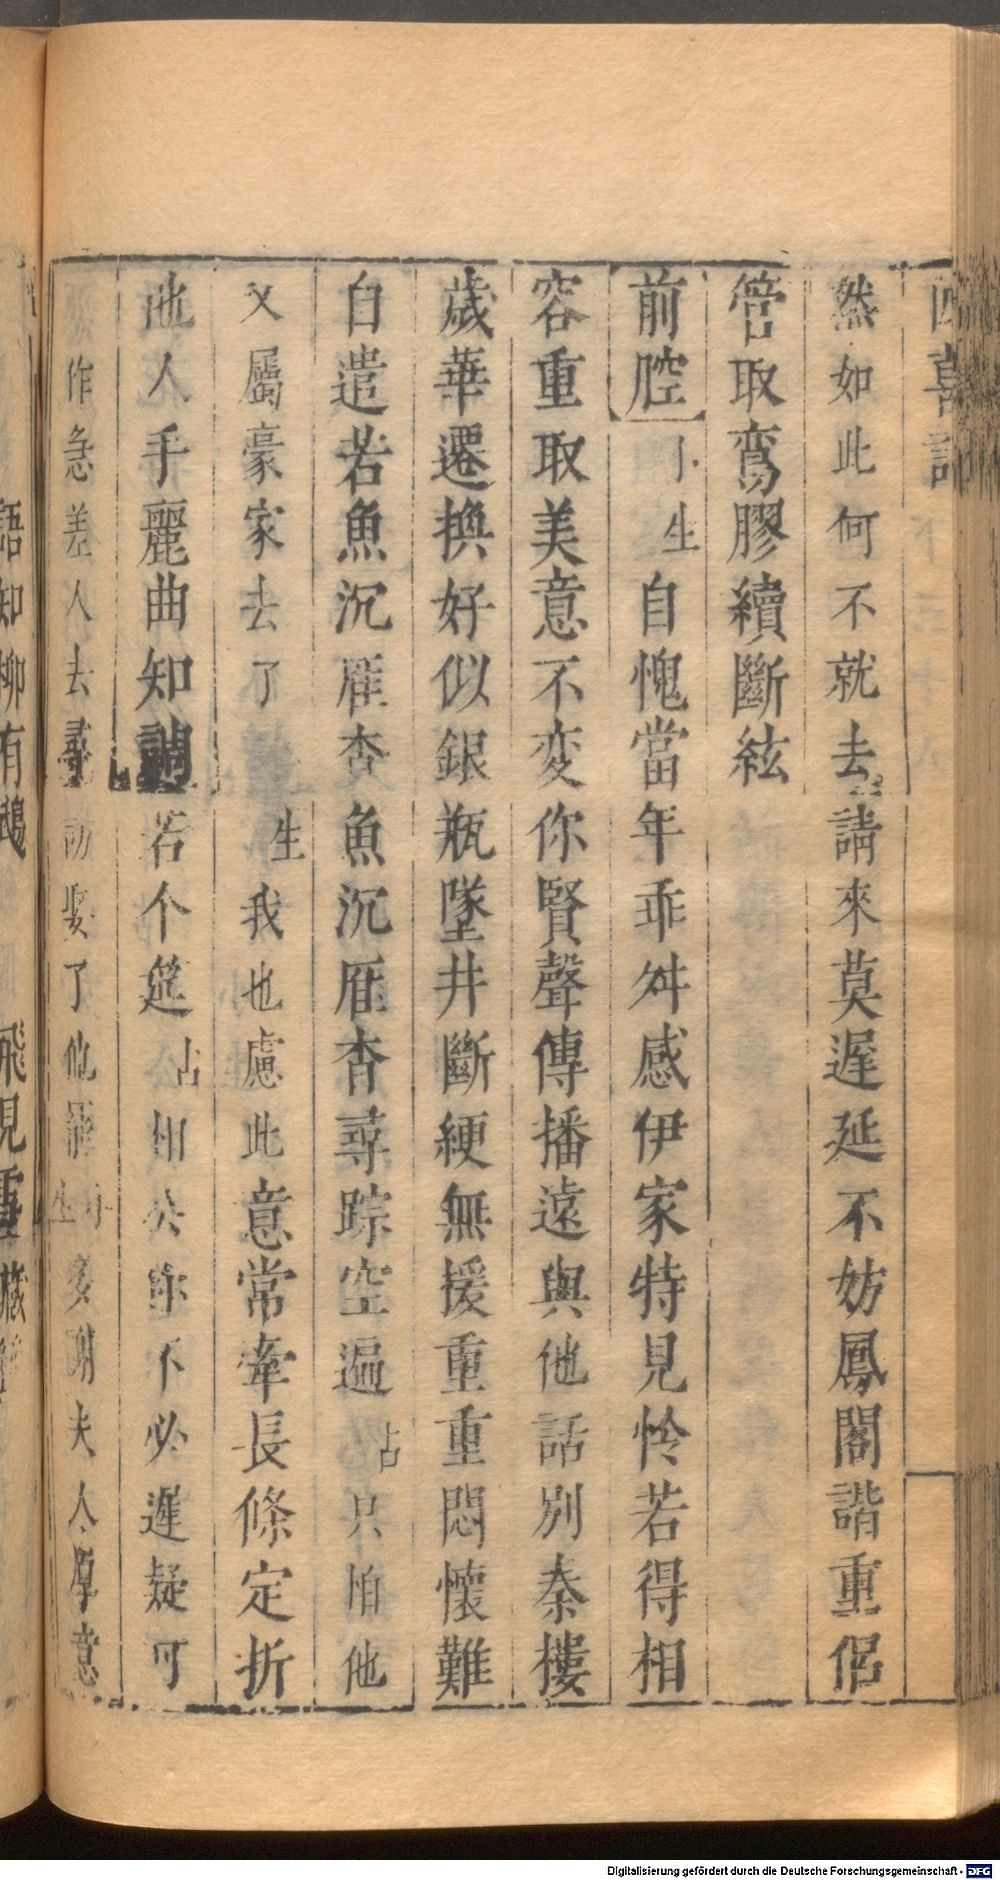 四喜記
然如此何不就去請來莫遲延不妨鳳閣諧重侣
管取鸞膠續斷絃
前腔 小生 自愧當年乖舛感伊家特見怜若得相
容重取美意不变你賢聲傳播遠與他話别秦樓
歲華遷換好似銀瓶墜井斷綆無援重重悶懷難
自遣若魚沉雁杳魚沉雁杳尋踪空遍 占 只怕他
又屬豪家去了 生 我也慮此意常牽長條定折
他人手麗曲知 若个筵 占 相公你不必遲疑可
作急差人去尋訪娶了他罷 多謝夫人厚意
語知柳有
飛見
Digitalisierung gefördert durch die Deutsche Forschungsgemeinschaft - DFG